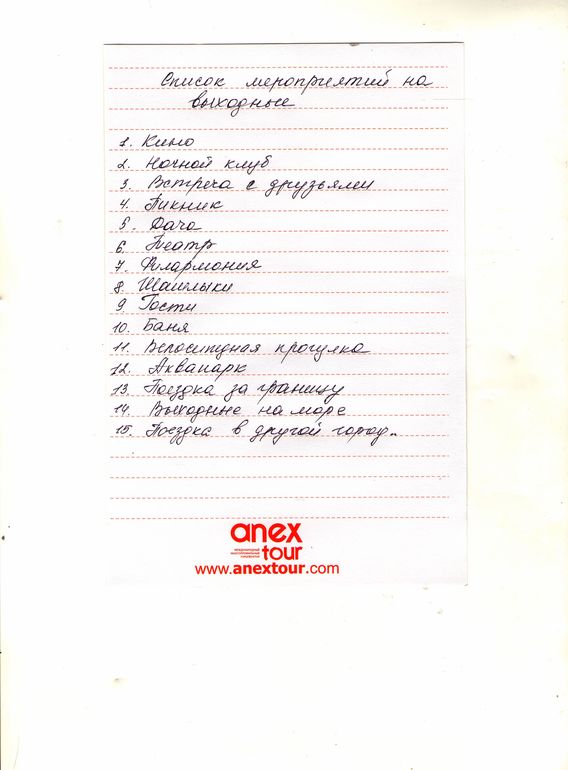 Список мероприятий на
выходные
1. Кино
2. Ночной клуб
3. Встреча с друзьями
4. Пикник
5. Дача
6. Театр
7. Филармония
8. Шашлыки
9. Гости
10. Баня
11. Велосипедная прогулка
12. Аквапарк
13. Поездка за границу
14. Выходные на море
15. Поездка в другой город..
anex
tour
www.anextour.com